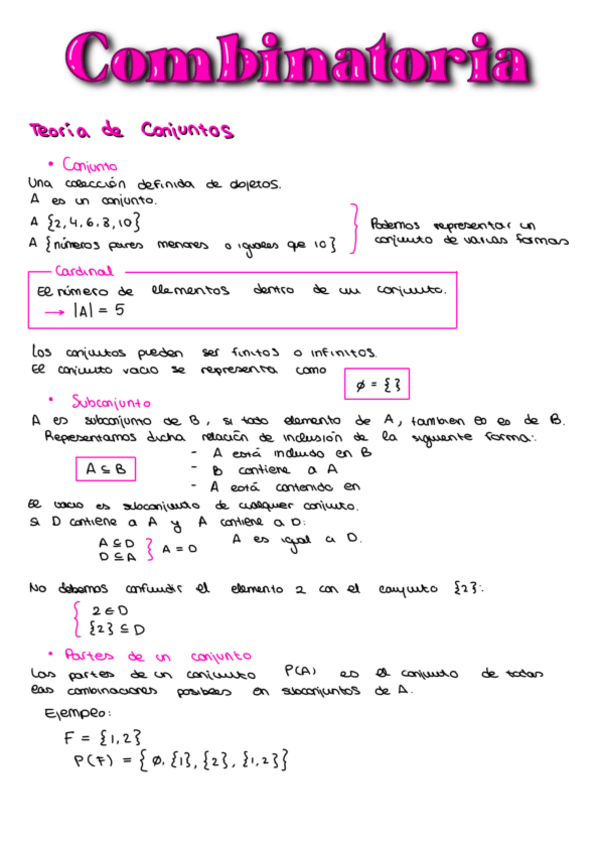 Combinatoria
Teoría de Conjuntos
• Conjunto
Una colección definida de objetos.
A es un conjunto.
A {2,4,6,8,10}
A {números pares menores o iguales que 10}
Podemos representar un
conjunto de varias formas
Cardinal
El número de elementos dentro de un conjunto.
→ |A| = 5
Los conjuntos pueden ser finitos o infinitos.
El conjunto vacio se representa como
ø = { }
• Subconjunto
A es subconjunto de B, si todo elemento de A, tambien lo es de B.
Representamos dicha relación de inclusión de la siguiente forma:
A ⊆ B
- A está incluido en B
- B contiene a A
- A está contenido en
El vacio es subconjunto de cualquier conjunto.
Si D contiene a A y A contiene a D:
A ⊆ D
D ⊆ A
A = D
A es igual a D.
No debemos confundir el elemento 2 con el conjunto {2}:
2 ∈ D
{2} ⊆ D
• Partes de un conjunto
Las partes de un conjunto P(A) es el conjunto de todas
las combinaciones posibles en subconjuntos de A.
Ejemplo:
F = {1,2}
P(F) = { ø, {1}, {2}, {1,2}}